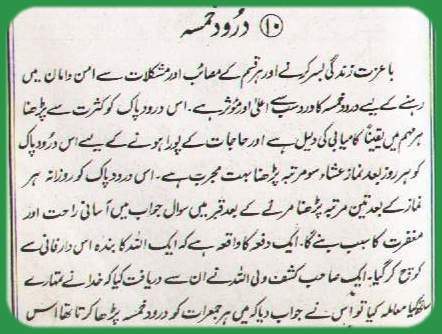 ⑩ درُود خمسہ
باعزت زندگی بسر کرنے اور ہر قسم کے مصائب اور مشکلات سے امن و امان میں
رہنے کے لیے درود خمسہ کا ورد سب سے اعلیٰ اور مؤثر ہے۔ اس درود پاک کو کثرت سے پڑھنا
ہر مہم میں یقیناً کامیابی کی دلیل ہے اور حاجات کے پورا ہونے کے لیے اس درُود پاک
کو ہر روز بعد نماز عشاء سو مرتبہ پڑھنا بہت مجرب ہے۔ اس درود پاک کو روزانہ ہر
نماز کے بعد تین مرتبہ پڑھنا مرنے کے بعد قبر میں سوال جواب میں آسانی راحت اور
مغفرت کا سبب بنے گا۔ ایک دفعہ کا واقعہ ہے کہ ایک اللہ کا بندہ اس دار فانی سے
کوچ کر گیا۔ ایک صاحب کشف ولی اللہ نے ان سے دریافت کیا کہ خدا نے تمہارے
ساتھ کیا معاملہ کیا تو اس نے جواب دیا کہ میں ہر جمعرات کو درود خمسہ پڑھا کرتا تھا اس